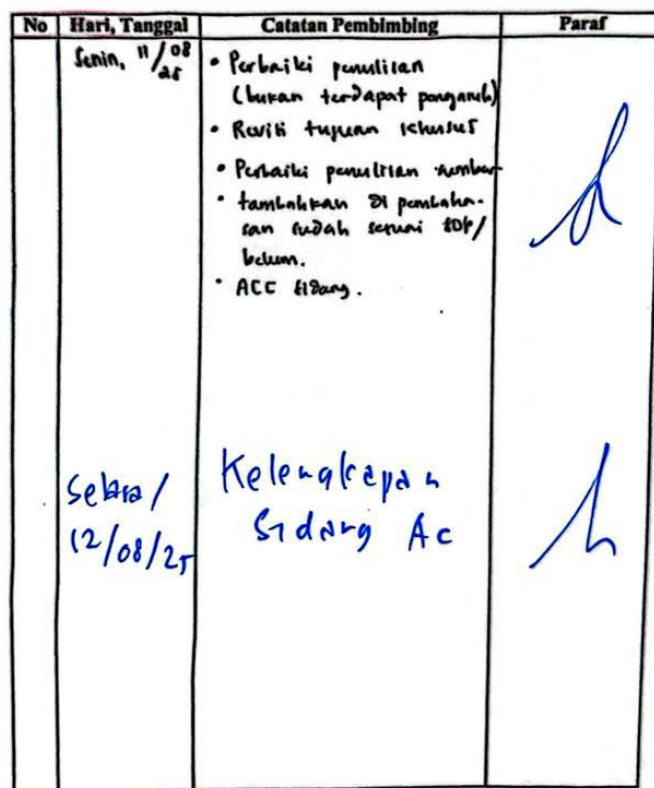 No Hari, Tanggal Catatan Pembimbing Paraf
Senin, 11/08
25
• Perbaiki penulisan
(bukan terdapat pengaruh)
• Revisi tujuan khusus
• Perbaiki penulisan sumber
• tambahkan di pembaha-
san sudah sesuai SOP/
belum.
• ACC sidang.
Selasa/
12/08/25
Kelengkapan
Sidang Ac